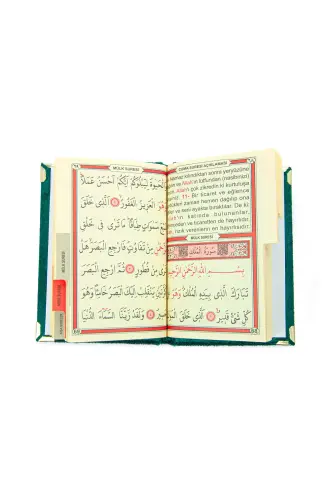 CUMA SURESİ AÇIKLAMASI
Namaz kılındıktan sonra yeryüzüne
ve Allah'ın lütfundan (nasibinizi)
Allah'ı çok zikredin ki kurtuluşa
11- Bir ticaret ve eğlence
zaman hemen dağılıp ona
ve seni ayakta bıraktılar. De ki
Allah'ın katında bulunanlar,
ve ticaretten de hayırlıdır.
rızık verenlerin en hayırlısıdır.
MÜLK SURESİ
سورة الملك
بِسْمِ اللّٰهِ الرَّحْمٰنِ الرَّحِيمِ
تَبَارَكَ الَّذِي بِيَدِهِ الْمُلْكُ وَهُوَ عَلٰى
كُلِّ شَيْءٍ قَدِيرٌ الَّذِي خَلَقَ الْمَوْتَ
MÜLK SURESİ
وَالْحَيٰوةَ لِيَبْلُوَكُمْ اَيُّكُمْ اَحْسَنُ عَمَلًا
وَهُوَ الْعَزِيزُ الْغَفُورُ الَّذِي خَلَقَ
سَبْعَ سَمٰوَاتٍ طِبَاقًا مَا تَرٰى فِي خَلْقِ
الرَّحْمٰنِ مِنْ تَفَاوُتٍ فَارْجِعِ الْبَصَرَ هَلْ
تَرٰى مِنْ فُطُورٍ ثُمَّ ارْجِعِ الْبَصَرَ
كَرَّتَيْنِ يَنْقَلِبْ اِلَيْكَ الْبَصَرُ خَاسِئًا وَهُوَ
حَسِيرٌ وَلَقَدْ زَيَّنَّا السَّمَاءَ الدُّنْيَا